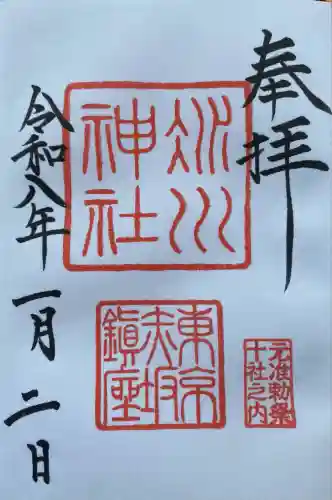 奉拝
氷川神社
東京赤坂鎮座
元准勅祭
十社之内
令和八年一月二日